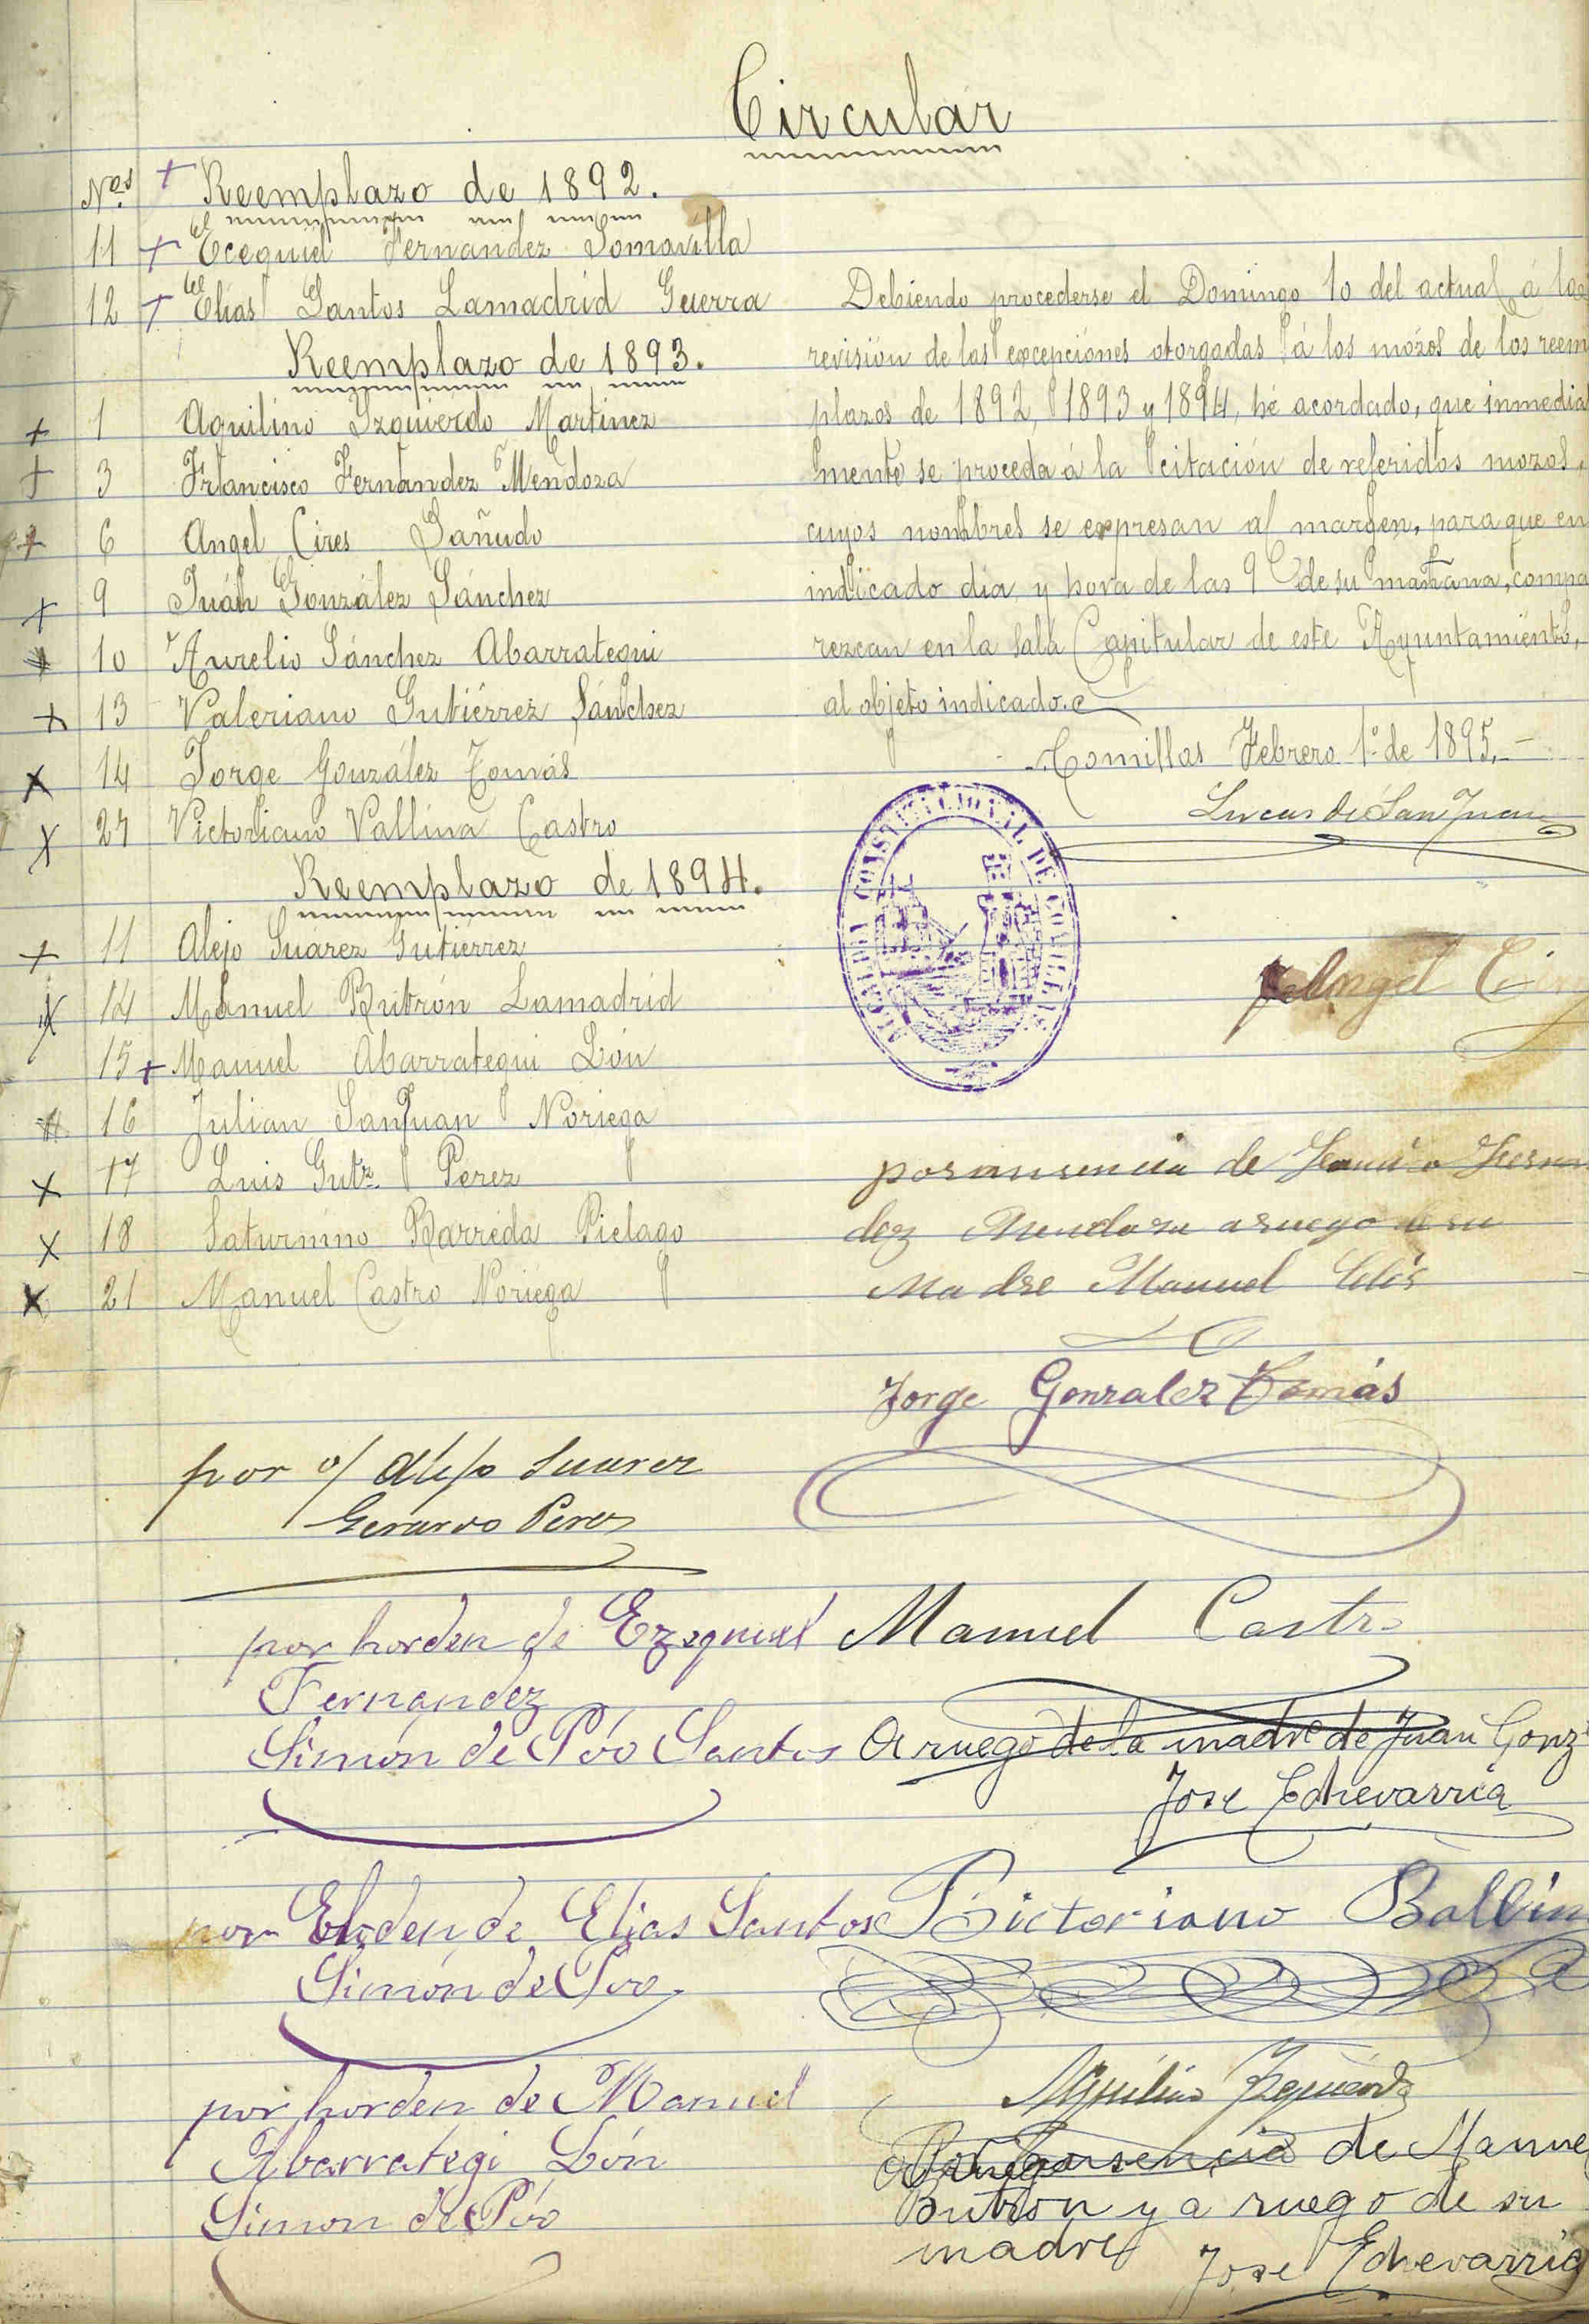 Circular
Nos. + Reemplazo de 1892.
11 + Ecequiel Fernandez Somavilla
12 + Elías Santos Lamadrid Guerra
Reemplazo de 1893.
+ 1 Aquilino Izquierdo Martinez
+ 3 Francisco Fernandez Mendoza
+ 6 Angel Cires Sañudo
+ 9 Juán González Sánchez
+ 10 Aurelio Sánchez Abarrategui
+ 13 Valeriano Gutiérrez Sánchez
x 14 Jorge González Tomás
x 27 Victoriano Vallina Castro
Reemplazo de 1894.
+ 11 Alejo Suárez Gutiérrez
x 14 Manuel Butrón Lamadrid
15 + Manuel Abarrategui Lón
16 Julian SanJuan Noriega
x 17 Luis Gutz. Perez
x 18 Saturnino Barréda Piélago
x 21 Manuel Castro Noriéga
Debiendo procederse el Domingo 10 del actual á la
revisión de las excepciónes otorgadas á los mózos de los reem
plazos de 1892, 1893 y 1894, hé acordado, que inmedia
mente se proceda á la citación de referidos mozos,
cuyos nombres se expresan al margen, para que en
indicado dia y hora de las 9 de su mañana, compa
rezcan en la Sala Capitular de este Ayuntamiento,
al objeto indicado.
Comillas Febrero 1º de 1895.
Lucas de San Juan
CONSTITUCIONAL DE COMILLAS
Angel Cires
por ausencia de Fernan
dez Mendoza a ruego de su
Madre Manuel Celis
Jorge Gonzalez Tomás
por o/ Alejo Suarez
Gerardo Perez
por horden de Ezequiel
Fernandez
Simón de Póo Santos
Manuel Castro
A ruego de la madre de Juan Gonz
Jose Echevarria
por Elorden de Elias Santos
Simón de Póo
Bictoriano Ballina
por horden de Manuel
Abarrategi Lón
Simon de Póo
Aquilino Izquierdo
Por ausencia de Manuel
Butron y a ruego de su
madre Jose Echevarria